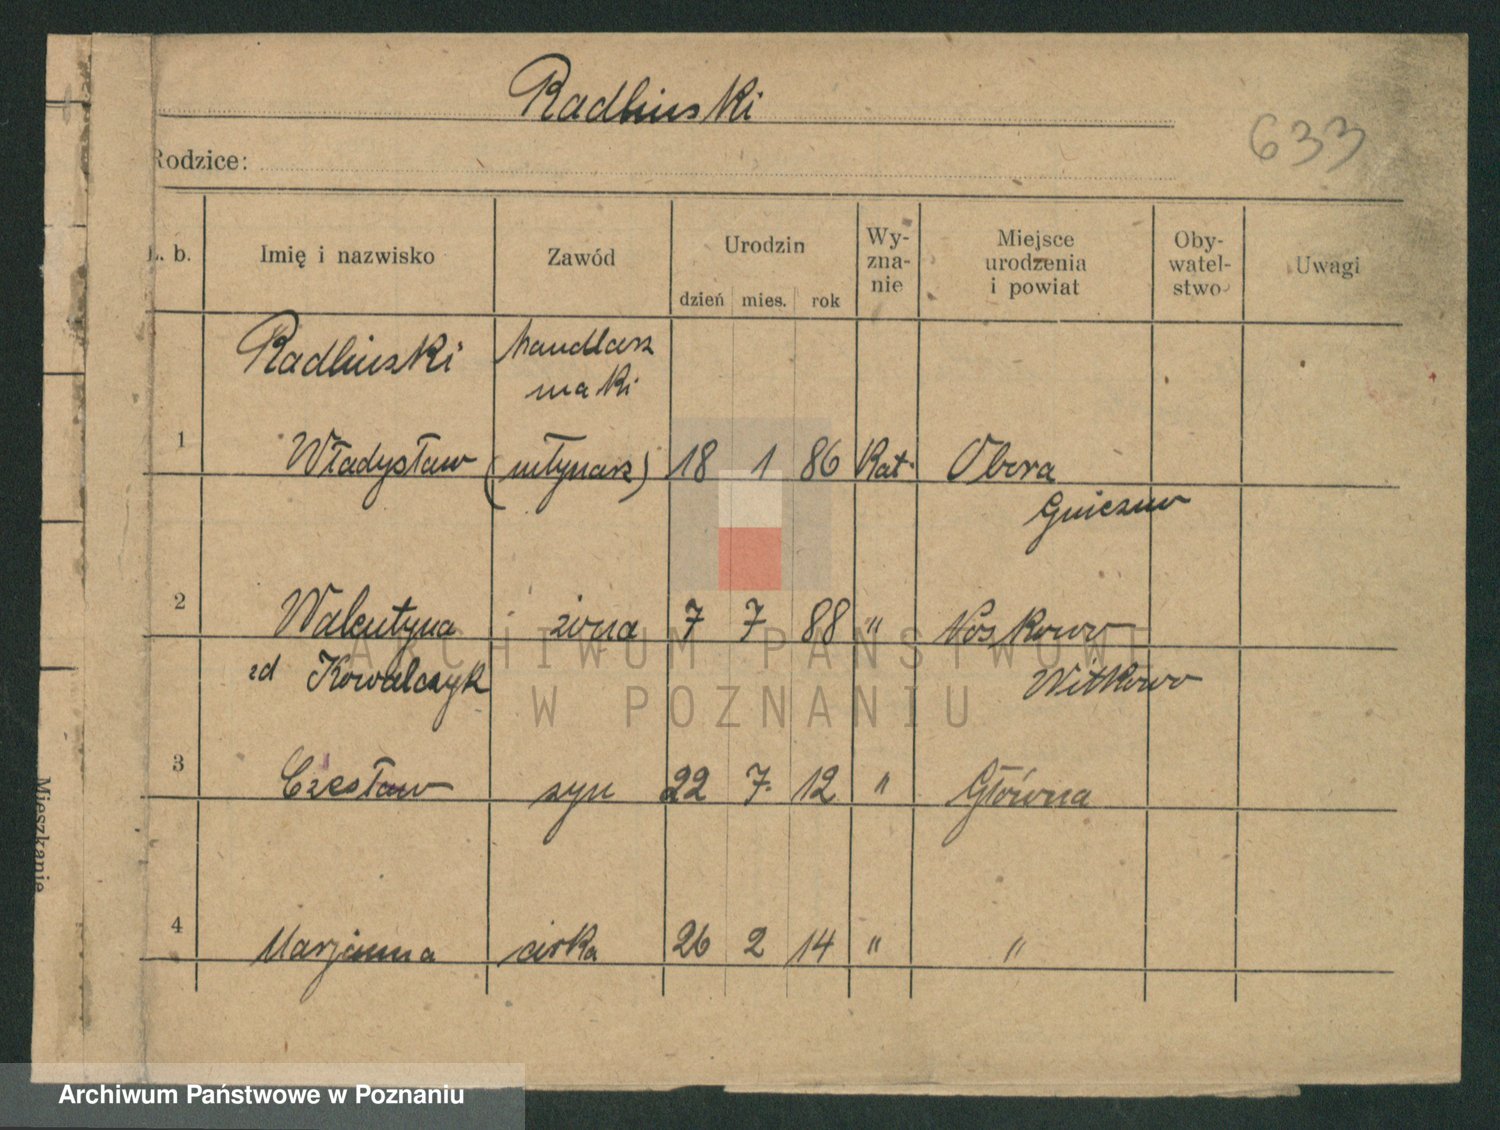 Radliński
633
Rodzice:
L. b.
Imię i nazwisko
Zawód
Urodzin
dzień mies. rok
Wy-
zna-
nie
Miejsce
urodzenia
i powiat
Oby-
watel-
stwo
Uwagi
Radliński handlarz
mąki
1 Władysław (młynarz) 18 1 86 Kat. Obora
Gniezno
2 Walentyna żona 7 7 88 "
Kowalczyk Witkowo
3 Czesław syn 22 7. 12 " Główna
4 Marjanna córka 26 2 14 " "
Mieszkanie
ARCHIWUM PAŃSTWOWE
W POZNANIU
Archiwum Państwowe w Poznaniu